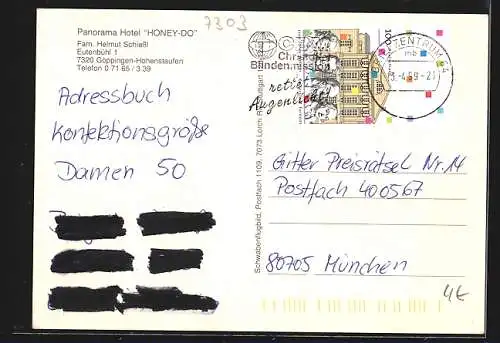 7303
Panorama Hotel "HONEY-DO"
Fam. Helmut Schießl
Eutenbühl 1
7320 Göppingen-Hohenstaufen
Telefon 0 71 65 / 3 39
Adressbuch
Konfektionsgröße
Damen 50
Blindenmission
rettet
Augenlicht
100
ZENTRUM
mb
Schwabenflugbild, Postfach 1109, 7073 Lorch
Gitter Preisrätsel Nr. 14
Postfach 400567
80705 München
4€